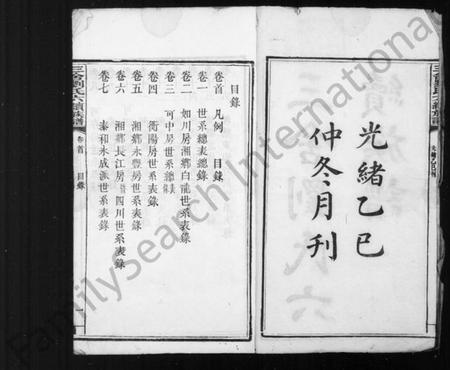 光緒乙巳
仲冬月刊
三舍劉氏六續族譜
卷首
目錄
目錄
卷首 凡例 目錄
卷一 世系表總錄
卷二 如川房湘鄉白龍世系表錄
卷三 可中房世系總錄
卷四 衡陽房世系表錄
卷五 湘鄉永豐房世系表錄
卷六 湘鄉長江房四川世系表錄
卷七 泰和永成派世系表錄
FamilySearch International